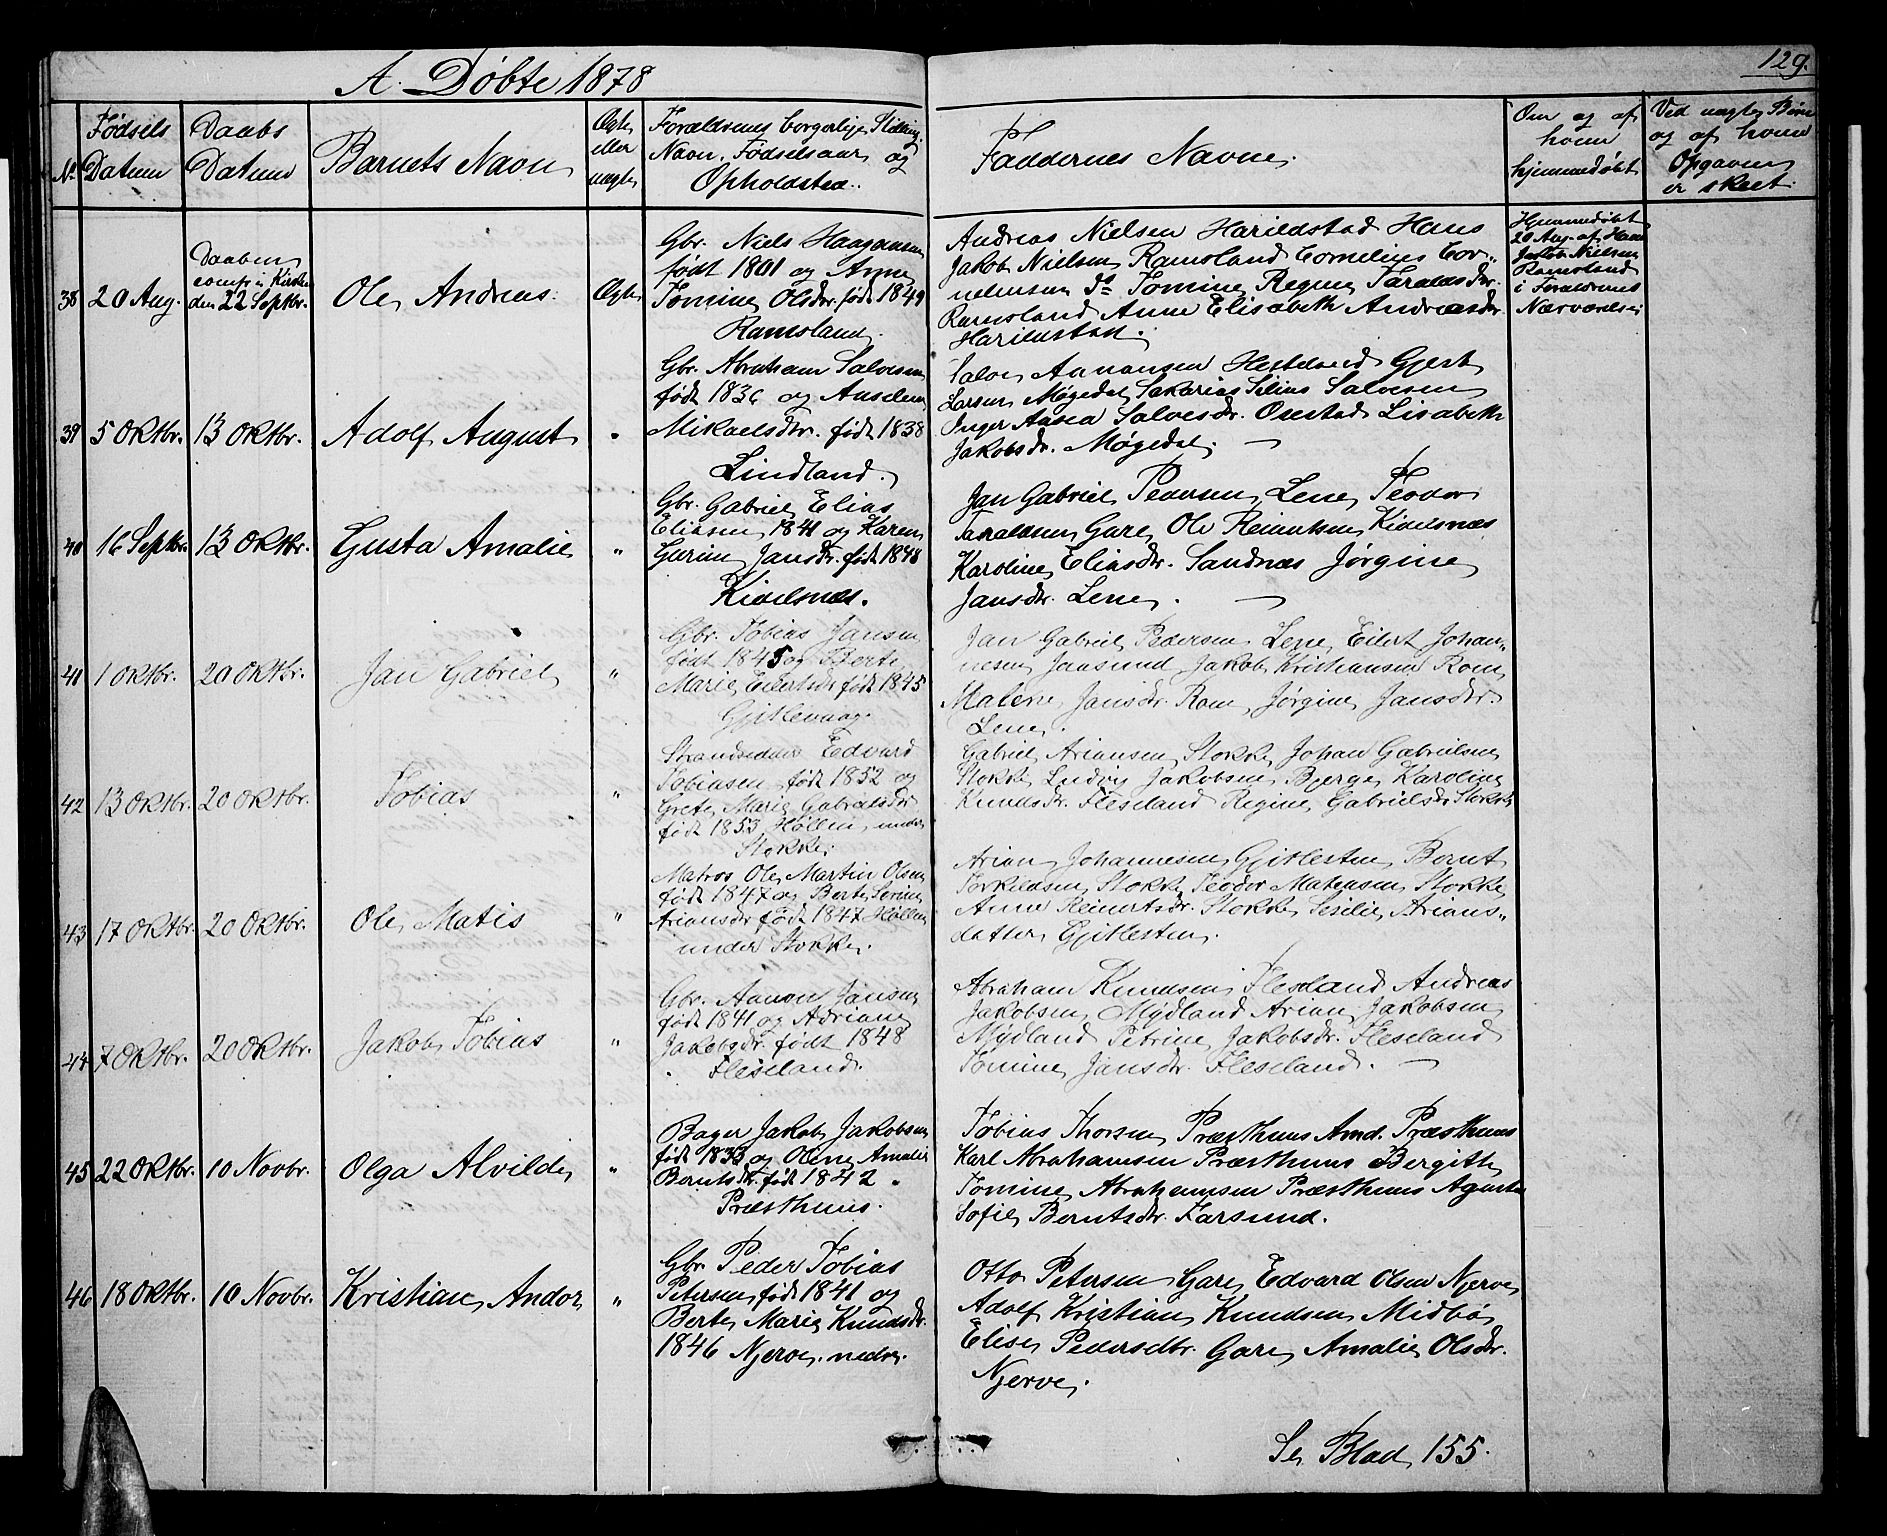 129.
A. Døbte 1878
No.
Fødsels
Datum
Daabs
Datum
Barnets Navn
Ægte
eller
uægte
Forældrenes borgerlige Stilling,
Navn, Fødselsaar og
Opholdsted.
Faddernes Navne.
Om og af
hvem
hjemmedøbt
Ved uægte Børn
og af hvem
Opgaven
er skeet.
38
20 Aug.
Daaben
i Kirken
den 22 Septbr.
Ole Andreas.
Ægte
Gbr. Niels Haagensen
født 1801 og Anne
Tomine Olsdtr. født 1849
Ramsland.
Andreas Nielsen Harildstad Hans
Jakob Nielsen Ramsland Cornelius Cor-
neliusen Tomine Regine Taraldsdtr.
Ramsland Anne Elisabeth Andreasdtr.
Harildstad.
Hjemmedøbt
20 Aug. af Hans
Jakob Nielsen
Ramsland
i Forældrenes
Nærværelse
39
5 Oktbr.
13 Oktbr.
Adolf August
"
Gbr. Abraham Salvesen
født 1836 og Anselene
Mikaelsdtr. født 1838
Lindland.
Salve Aanansen Hestelund Gjert
Larsen Møgedal Sakarias Salvesen
Inger Aasea Salvesdtr. Osestad Lisabeth
Jakobsdtr. Møgedal. —
40
16 Septbr.
13 Oktbr.
Gusta Amalie
"
Gbr. Gabriel Elias
Eliasen 1841 og Karen
Gurine Jansdtr. født 1848
Kidelsnæs.
Jan Gabriel Pedersen Lene Teodor
Taraldsen Gare Ole Reinertsen Kidelsnæs
Karoline Eliasdtr. Sandnæs Jørgine
Jansdtr. Lene. —
41
1 Oktbr.
20 Oktbr.
Jan Gabriel
"
Gbr. Tobias Jansen
født 1845 og Berte
Marie Eilertsdtr født 1845
Gjitlevaag.
Jan Gabriel Pedersen Lene Eilert Johan-
nesen Jaasund Jakob Kristiansen Rom
Malene Jansdtr. Rom Jørgine Jansdtr.
Lene.
42
13 Oktbr.
20 Oktbr.
Tobias
"
Strandsidder Edvard
Tobiasen født 1852 og
Grete Marie Gabrielsdtr
født 1853 Høllen under
Stokke.
Gabriel Ariansen Stokke Johan Gabrielsen
Stokke Ludvig Jakobsen Bjerge Karoline
Knudsdtr. Fleseland Regine Gabrielsdtr Stokke
43
17 Oktbr.
20 Oktbr.
Ole Matis
"
Matros Ole Martin Olsen
født 1847 og Berte Serine
Ariansdtr født 1847 Høllen
under Stokke.
Arian Johannesen Gjitlesten Bernt
Torkildsen Stokke Teodor Matensen Stokke
Anne Reinertsdr. Stokke Sesilie Arians-
datter Gjitlesten.
44
7 Oktbr.
20 Oktbr.
Jakob Tobias
"
Gbr. Aanon Jansen
født 1841 og Adriane
Jakobsdtr. født 1848
Fleseland.
Abraham Knudsen Fleseland Andreas
Jakobsen Mydland Arian Jakobsen
Mydland Petrine Jakobsdtr. Fleseland
Tomine Jansdtr. Fleseland. —
45
22 Oktbr.
10 Novbr.
Olga Alvilde
"
Bager Jakob Jakobsen
født 1833 og Oline Amalie
Berntsdtr. født 1842
Præsthuus.
Tobias Thorsen Præsthuus Amd. Præsthuus
Karl Abrahamsen Præsthuus Bergitte
Tomine Abrahamsen Præsthuus Agusta
Sofie Berntsdtr. Farsund.
46
18 Oktbr.
10 Novbr.
Kristian Andor
"
Gbr. Peder Tobias
Petersen født 1841 og
Berte Marie Knudsdtr.
1846 Njerve nedre.
Otto Petersen Gare Edvard Olsen Njerve
Adolf Kristian Knudsen Midbø
Elise Pedersdtr. Gare Amalie Olsdtr.
Njerve.
Se Blad 155.